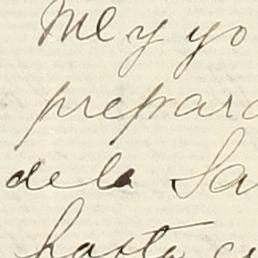 Me y yo
prepara
de la Sa
hasta es